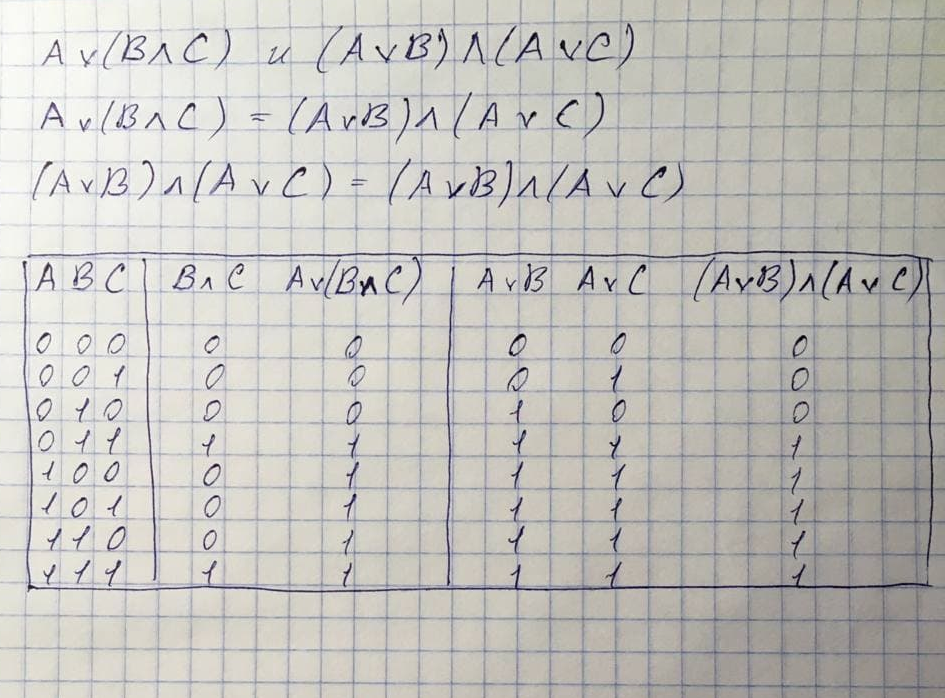 A ∨ (B ∧ C) и (A ∨ B) ∧ (A ∨ C)
A ∨ (B ∧ C) = (A ∨ B) ∧ (A ∨ C)
(A ∨ B) ∧ (A ∨ C) = (A ∨ B) ∧ (A ∨ C)
A B C B ∧ C A ∨ (B ∧ C) A ∨ B A ∨ C (A ∨ B) ∧ (A ∨ C)
0 0 0 0 0 0 0 0
0 0 1 0 0 0 1 0
0 1 0 0 0 1 0 0
0 1 1 1 1 1 1 1
1 0 0 0 1 1 1 1
1 0 1 0 1 1 1 1
1 1 0 0 1 1 1 1
1 1 1 1 1 1 1 1